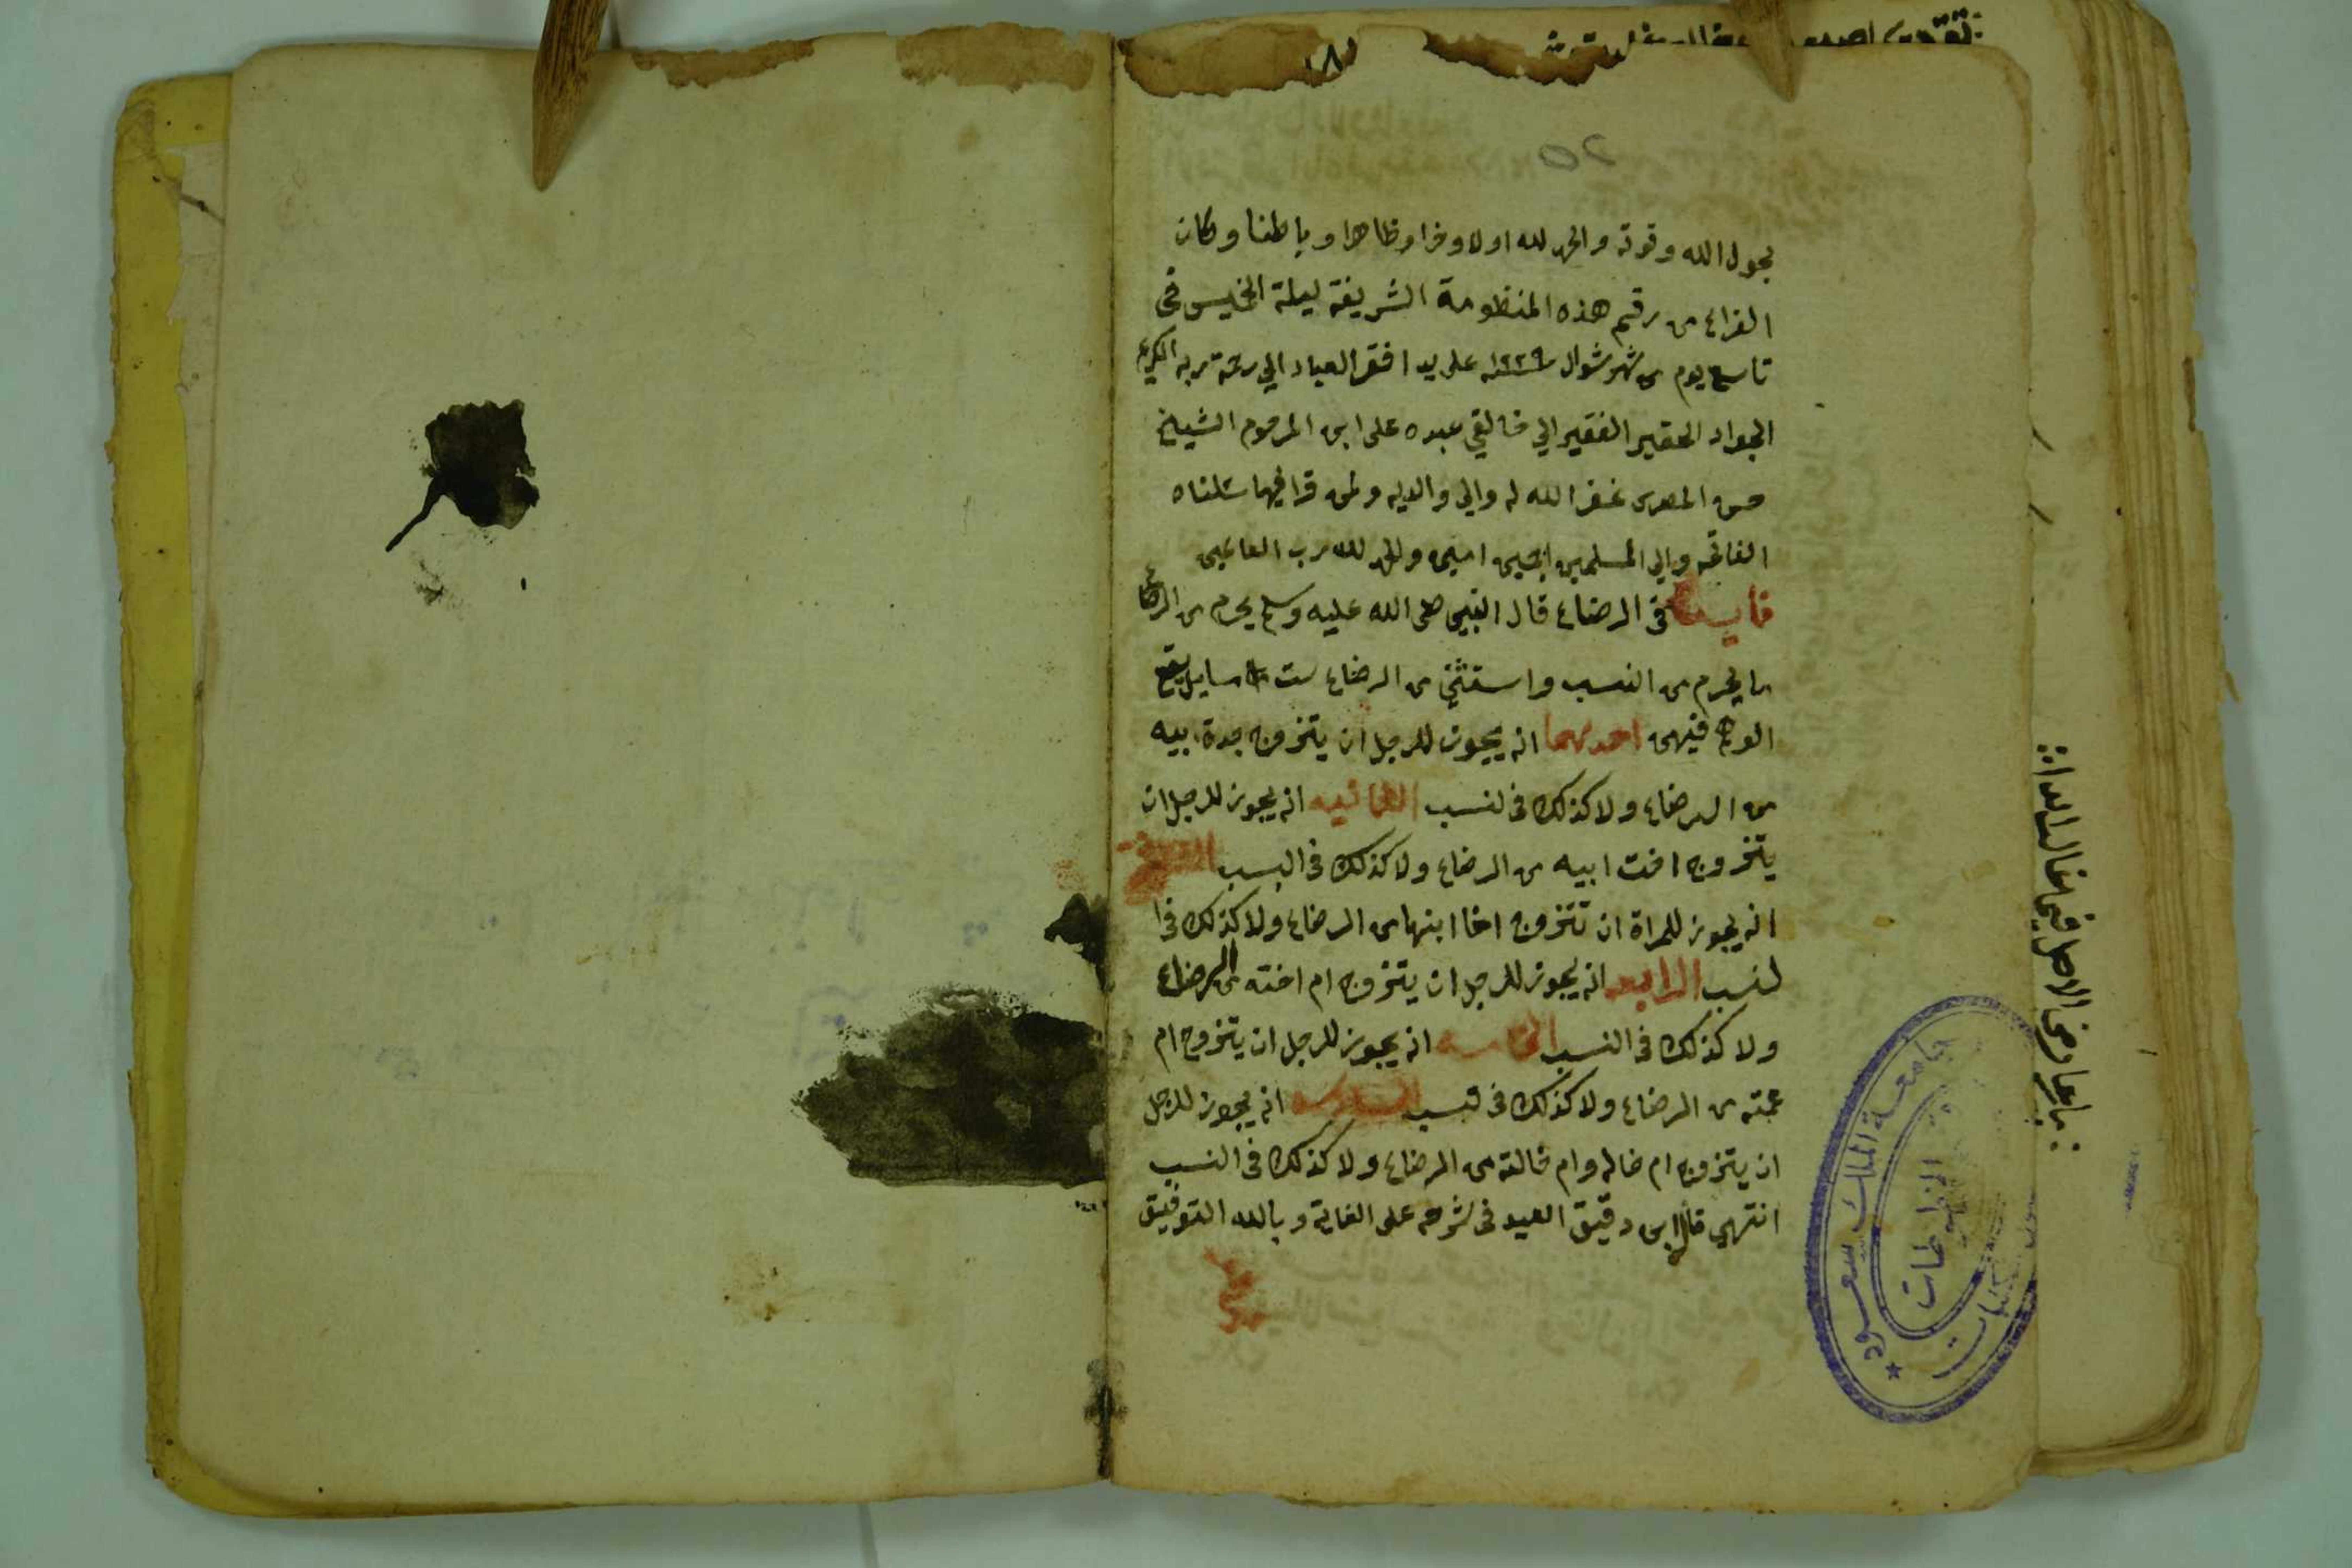 ٢٥
بحول الله وقوته والحمد لله اولا وخرا وظاهرا وباطنا وكان
الفراغ من رقيم هذه المنظومة الشريفة ليلة الخميس في
تاسع يوم من شهر شوال سنة ١٢٢٩ على يد افقر العباد الي رحمة ربه الكريم
الجواد الحقير الفقير الي خالقي عبده على ابن المرحوم الشيخ
حسن المصرى غفر الله له والي والديه ولمن قرا فيها
الفاتحه والي المسلمين اجمعين امين والحمد لله رب العالمين
فايده في الرضاع قال النبي صلى الله عليه وسلم يحرم من الرضاع
ما يحرم من النسب واستثني من الرضاع ست مسايل
فيهن احدهما انه يجوز للرجل ان يتزوج جدة ابيه
من الرضاع ولا كذلك في لنسب الثانيه انه يجوز للرجل ان
يتزوج اخت ابيه من الرضاع ولا كذلك في النسب
انه يجوز للمراة ان تتزوج اخا ابنها من الرضاع ولا كذلك في ا
لنسب الرابعه انه يجوز للرجل ان يتزوج ام اخته من الرضاع
ولا كذلك في النسب الخامسه انه يجوز للرجل ان يتزوج ام
عمته من الرضاع ولا كذلك في لنسب السادسه انه يجوز للرجل
ان يتزوج ام خاله وام خالته من الرضاع ولا كذلك في النسب
انتهي قال ابن دقيق العيد في شرحه على الغاية وبالله التوفيق
جامعة الملك سعود
المخطوطات